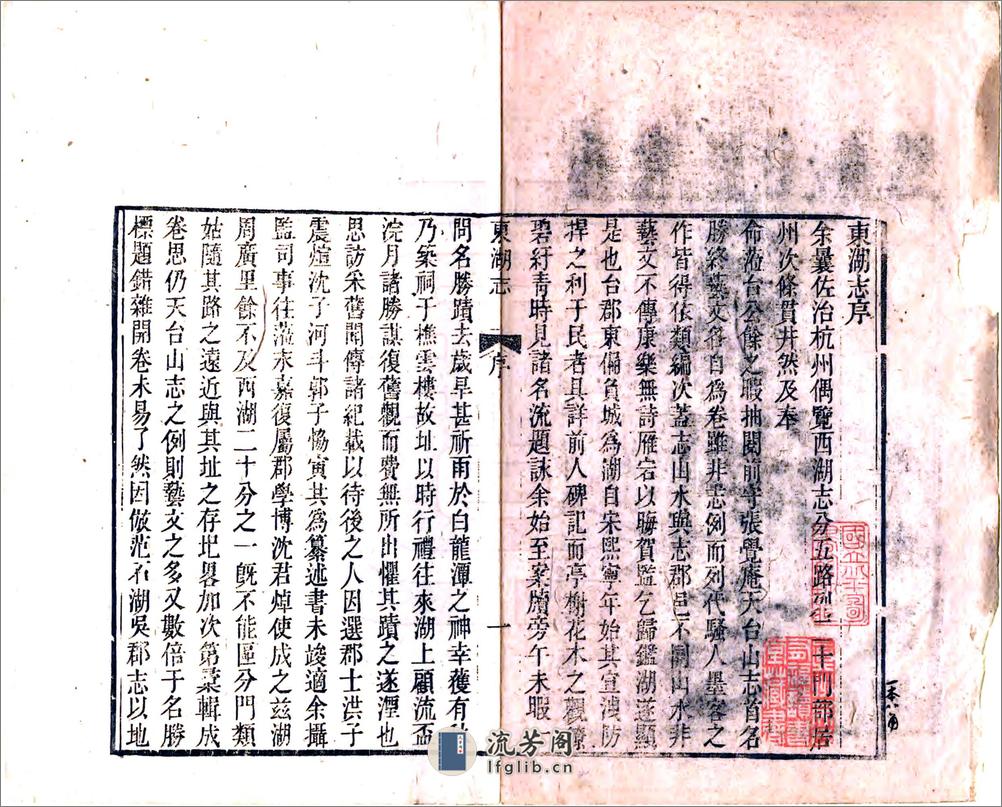 東湖志序
余曩佐治杭州偶覽西湖志分五路列 二十門部居
州次條貫井然及奉
命蒞台公餘之暇抽閱前守張覺庵天台山志首名
勝終藝文各自為卷雖非志例而列代騷人墨客之
作皆得依類編次蓋志山水與志郡邑不同山水非
藝文不傳康樂無詩雁宕以晦賀監乞歸鑑湖遂顯
是也台郡東偏負城為湖自宋熙寧年始其宣洩防
捍之利于民者具詳前人碑記而亭榭花木之觀繚
碧紆青時見諸名流題詠余始至案牘旁午未暇
東湖志
序
一
問名勝蹟去歲旱甚祈雨於白龍潭之神幸獲有
乃築祠于樵雲樓故址以時行禮往來湖上顧流盃
浣月諸勝謀復舊觀而費無所出懼其蹟之遂湮也
思訪采舊聞傳諸紀載以待後之人因選郡士洪子
震煊沈子河斗郭子協寅其為纂述書未竣適余攝
監司事往蒞永嘉復屬郡學博沈君焯使成之茲湖
周廣里餘不及西湖二十分之一旣不能區分門類
姑隨其路之遠近與其址之存圮畧加次第彚輯成
卷思仍天台山志之例則藝文之多又數倍于名勝
標題錯雜開卷未易了然因倣范石湖吳郡志以地
流芳阁
lfglib.cn